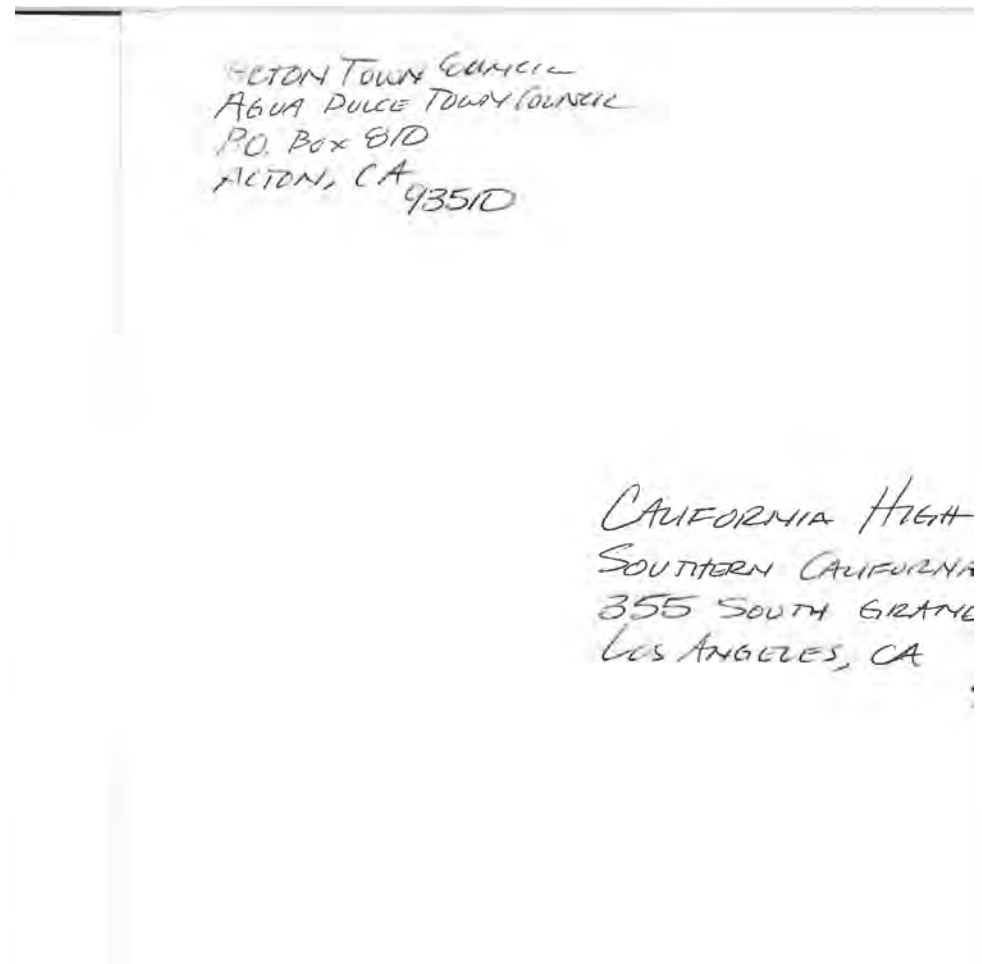 ACTON TOWN COUNCIL
AGUA DULCE TOWN COUNCIL
P.O. BOX 810
ACTON, CA
93510
CALIFORNIA HIGH
SOUTHERN CALIFORNIA
355 SOUTH GRAND
LOS ANGELES, CA